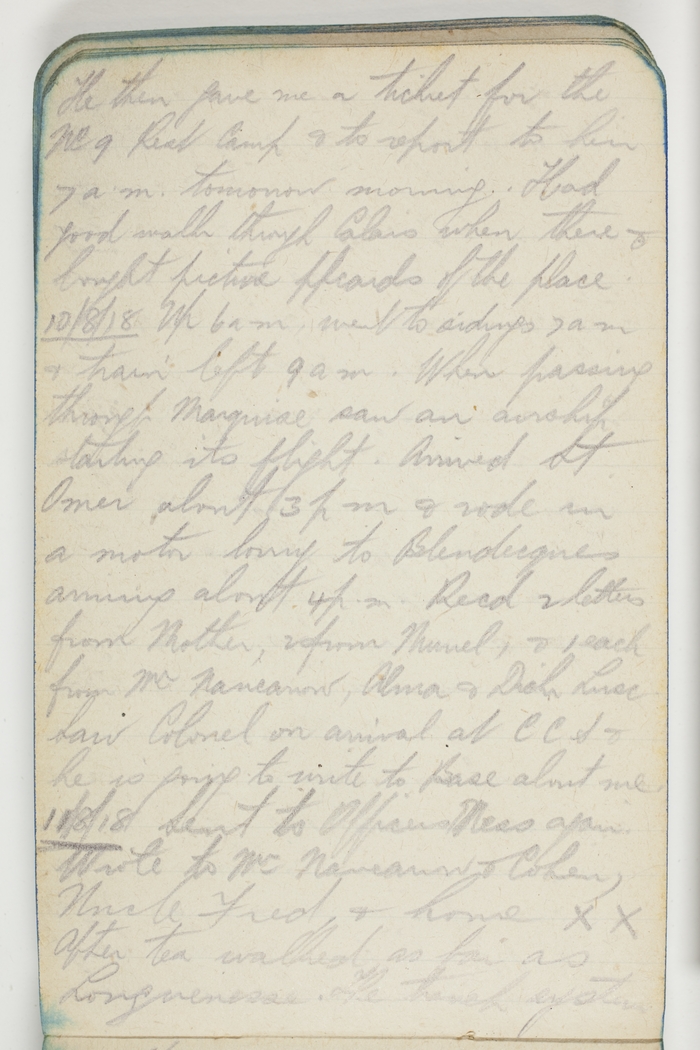 He then gave me a ticket for the
No 9 Rest Camp & to report to him
7 a.m. tomorrow morning. Had
good walk through Calais when there &
bought picture p/cards of the place.
10/8/18 Up 6 am, went to sidings 7 am
& train left 9 am. When passing
through Marquise saw an airship
starting its flight. Arrived St
Omer about 3 pm & rode in
a motor lorry to Blendecques
arriving about 4 p.m. Recd 2 letters
from Mother, 2 from Muriel, & 1 each
from Mr Nancarrow, Alma & Dick
Saw Colonel on arrival at CCS &
he is going to write to Base about me.
11/8/18 Sent to Officers Mess again.
Wrote to Mr Nancarrow & Cohen,
Uncle Fred, & home X X
After tea walked as far as
Longuenesse. The system